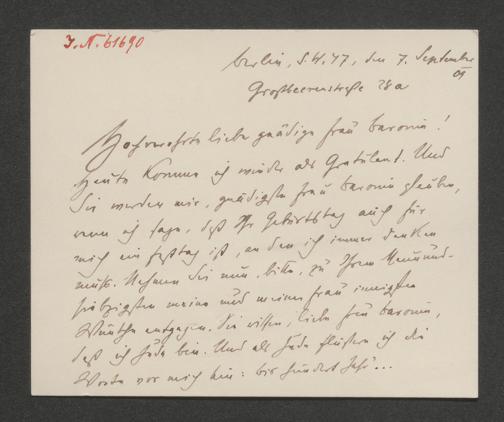 J.N. 61690
Berlin, S.W. 47, den 7. September
09
Großbeerenstraße 28a
Hochverehrte liebe gnädige Frau Baronin!
Heute komme ich wieder als Gratulant. Und
Sie werden mir, gnädigste Frau Baronin glauben,
wenn ich sage, daß Ihr Geburtstag auch für
mich ein Festtag ist, an den ich immer denken
muß. Nehmen Sie nun, bitte, zu Ihrem Neunund-
siebzigsten meine und meiner Frau innigsten
Wünsche entgegen. Sie wissen, liebe Frau Baronin,
daß ich Jude bin. Und als Jude flüstere ich die
Worte vor mich hin: bis hundert Jahr'...